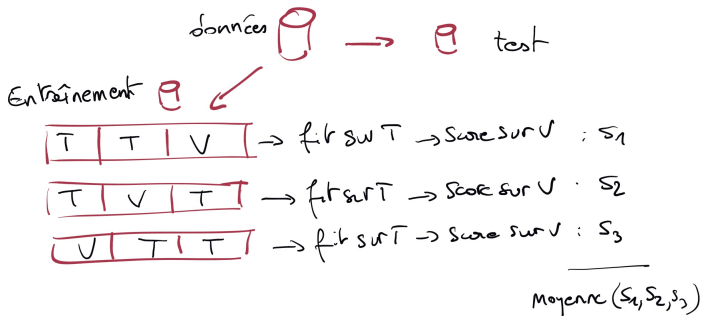 données
test
Entraînement
T T V fit sur T Score sur V : S1
T V T fit sur T Score sur V : S2
V T T fit sur T Score sur V : S3
Moyenne (S1, S2, S3)